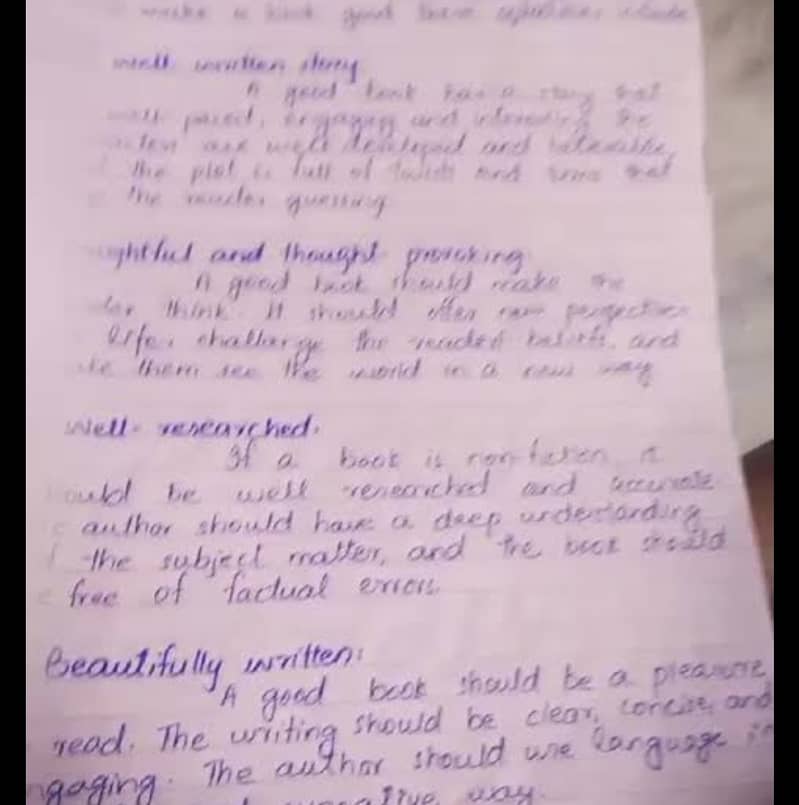 make a book good have
well written story
A good book has a story that
well paced, engaging and interesting The
are well developed and relatable
the plot is full of twists and turns that
the reader guessing
ightful and thought provoking
A good book should make the
der think. It should offer new perspectives
life, challange the readers beliefs, and
ke them see the world in a new way
Well- researched.
If a book is non-fiction, it
ould be well researched and accurate
author should have a deep understanding
the subject matter, and the book should
free of factual errors
Beautifully written:
A good book should be a pleasure
read. The writing should be clear, concise, and
ngaging. The author should use language in
way